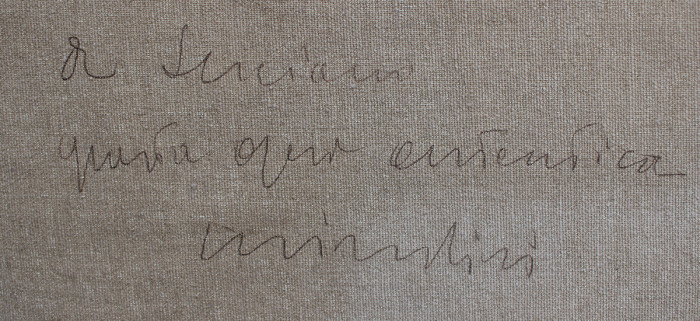 a Luciano
questa opera autentica